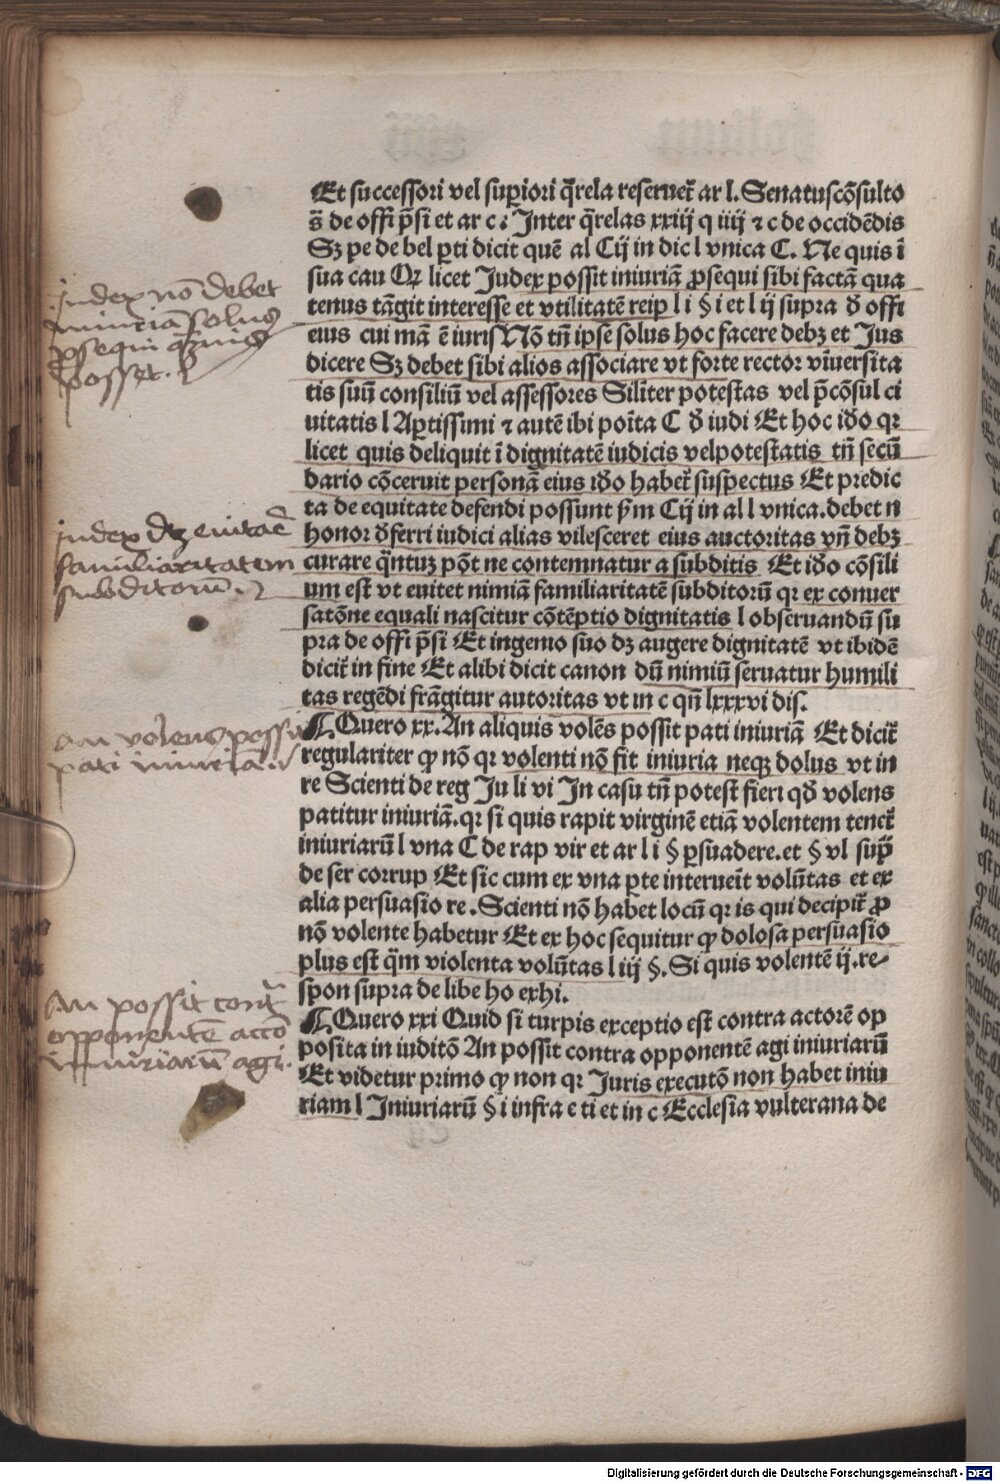 Et successori vel suꝑiori q̄rela reseruet᷑ ar l. Senatuscōsulto
s̄ de offi p̄si et ar c ⁊ Inter q̄relas xxiij q iiij ⁊ c de occidēdis
Sꝫ pe de bel ꝑti dicit quē al Cij in dic l vnica C. Ne quis ī
sua cau Qꝛ licet Judex possit iniuriā ꝓsequi sibi factā qua
tenus tāgit interesse et vtilitatē reip l i § i et l ij supra ꝺ̄ offi
eius cui mā ē iuris Nō tn̄ ipse solus hoc facere debꝫ et Jus
dicere Sꝫ debet sibi alios associare vt forte rector vīuersita
tis suū consiliū vel assessores Silīter potestas vel p̄cōsul ci
uitatis l Aꝑtissimi ⁊ autē ibi poīta C ꝺ̄ iudi Et hoc iꝺ̄o qꝛ
licet quis deliquit ī dignitatē iudicis velpotestatis tn̄ secū
dario cōceruit personā eius iꝺ̄o habet᷑ suspectus Et predic
ta de equitate defendi possunt ẜm Cij in al l vnica.debet n
honor ꝺ̄ferri iudici alias vilesceret eius auctoritas vn̄ debꝫ
curare q̄ntuꝫ pōt ne contemnatur a subditis Et iꝺ̄o cōsili
um est vt euitet nimiā familiaritatē subditorū qꝛ ex conuer
satōne equali nascitur cōtēptio dignitatis l obseruandū su
pra de offi p̄si Et ingenio suo dꝫ augere dignitatē vt ibidē
dicit᷑ in fine Et alibi dicit canon dū nimiū seruatur humili
tas regēdi frāgitur autoritas vt in c qn̄ lxxxvi dis.
¶ Quero xx. An aliquis volēs possit pati iniuriā Et dicit᷑
regulariter ꝙ nō qꝛ volenti nō fit iniuria neqꝫ dolus vt in
re Scienti de reg Ju li vi In casu tn̄ potest fieri qꝺ̄ volens
patitur iniuriā.qꝛ si quis rapit virginē etiā volentem tenet᷑
iniuriarū l vna C de rap vir et ar l i § ꝑsuadere.et § vl sup̄
de ser corrup Et sic cum ex vna ꝑte interueīt volūtas et ex
alia persuasio re . Scienti nō habet locū qꝛ is qui decipit᷑ ꝓ
nō volente habetur Et ex hoc sequitur ꝙ dolosa persuasio
plus est q̄m violenta volūtas l iij §. Si quis volentē ij.re-
spon supra de libe ho exhi.
¶ Quero xxi Quid si turpis exceptio est contra actorē op
posita in iuditō An possit contra opponentē agi iniuriarū
Et videtur primo ꝙ non qꝛ Juris executō non habet iniu
riam l Iniuriarū § i infra e ti et in c Ecclesia vulterana de
judex nō debet
iniuriā solus
ꝓsequi qꝫuis
posset.
judex dꝫ euitare
familiaritatem
subditorū.
An volens possit
pati iniuriā.
An possit cont̄
opponentē acco
iniuriarū agi.
Digitalisierung gefördert durch die Deutsche Forschungsgemeinschaft - DFG